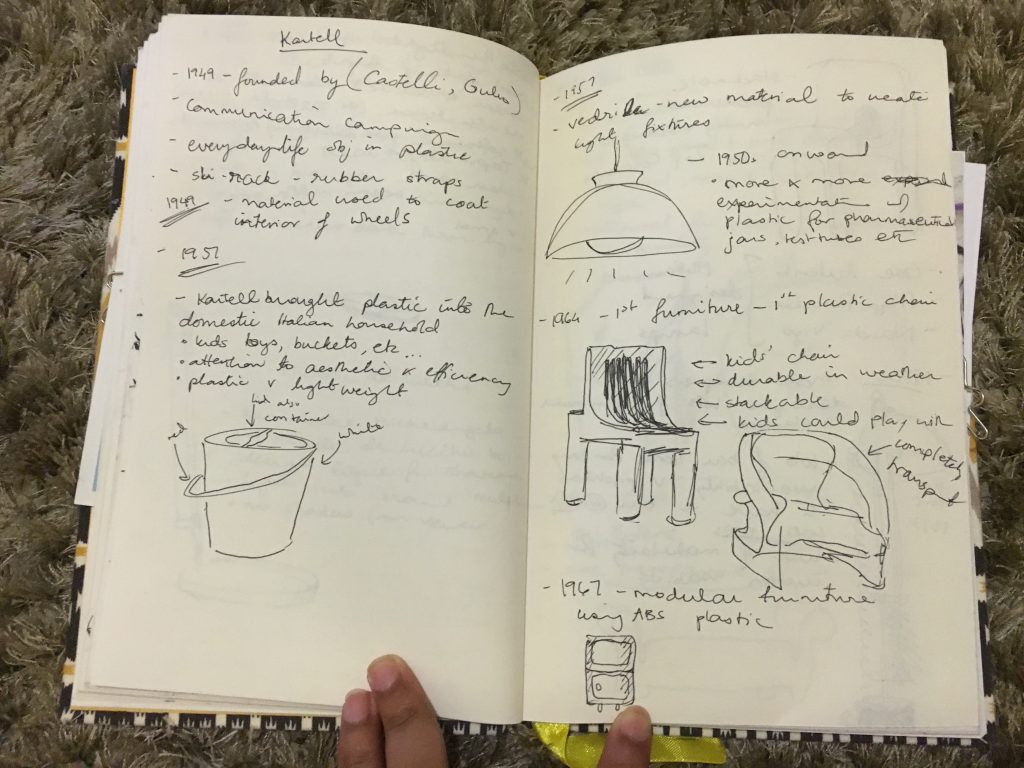 Kartell
- 1949 - founded by (Castelli, Giulio)
- communication campaign
- everyday life obj in plastic
- ski-rack - rubber straps
1949 - material used to coat
interior of wheels
- 1951
- Kartell brought plastic into the
domestic Italian household
• kids toys, buckets, etc...
• attention to aesthetic & efficiency
• plastic v lightweight
lid also
container
red
white
- 1957
- vedril - new material to create
light fixtures
- 1950s onward
• more & more
experimentation of
plastic for pharmaceutical
jars, test tubes etc
- 1964 - 1st furniture - 1st plastic chair
← kids' chair
← durable in weather
← stackable
← kids could play with
completely
- 1967 - modular furniture
using ABS plastic